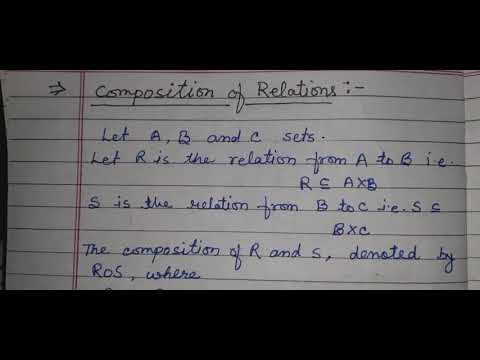 ⇒ Composition of Relations:-
Let A, B and C sets.
Let R is the relation from A to B i.e.
R ⊆ A×B
S is the relation from B to C i.e. S ⊆
B×C
The composition of R and S, denoted by
ROS, where